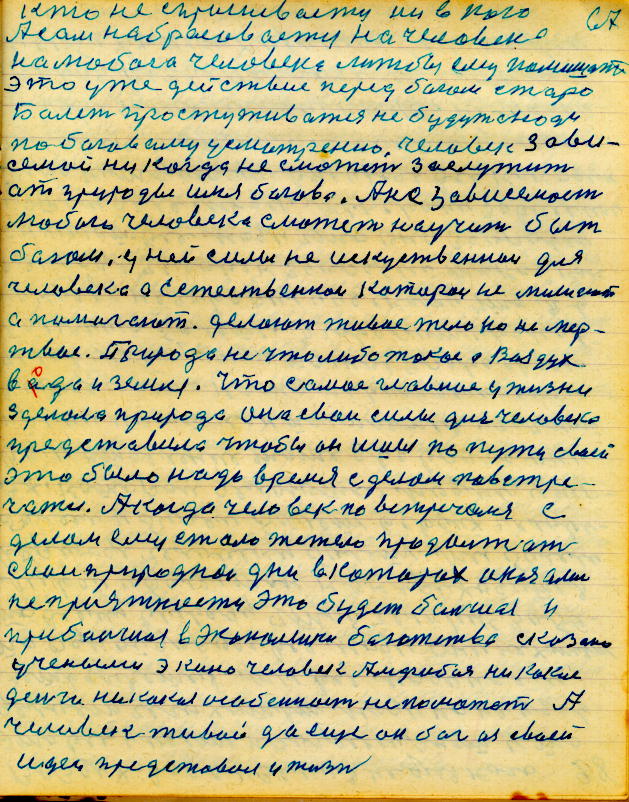 Кто не спрашивает ни в кого 67
А сам набрасовает на человека
на любога человека лижбы ему помишать
это уже действие перед богом старо
Балет простуживатся не будут люди
по боговому усмотрению. человек зави-
семой ни когда не сможет заслужит
от природы имя богово. А не зависемост
любого человека сможет научит быт
богом. у ней силы не искуственнои для
человека а естественнои которои не мишают
а помогают. делают живое тело но не мер-
твое. Природа не что либо токое а Воздух
вода и земля. что самое главное у жизни
зделола природа она свои силы для человека
представила чтобы он шол по пути своей
это было надо время с делом повстре-
чати. А когда человек по встречался с
делом ему стало тежело продолжат
свои природнои дни в которох оказалис
неприятности это будет болшая и
прибольшая в экономики богатства сказано
учеными э кино человек Амфибия ни какие
денги никакая особенност не поможет А
человек живой да еще он бог он своей
идеи представол у жизн